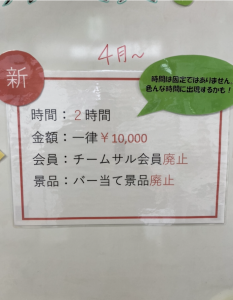 4月～
新
時間は固定ではありません
色んな時間に出現するかも！
時間：２時間
金額：一律￥10,000
会員：チームサル会員廃止
景品：バー当て景品廃止